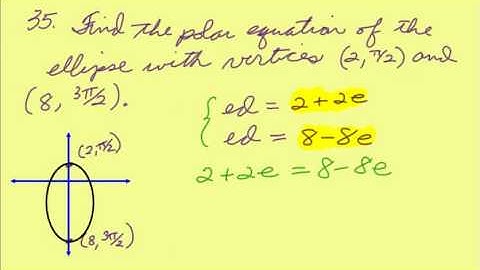 35. Find the polar equation of the
ellipse with vertices (2, π/2) and
(8, 3π/2).
ed = 2+2e
ed = 8-8e
2+2e = 8-8e
(2, π/2)
(8, 3π/2)